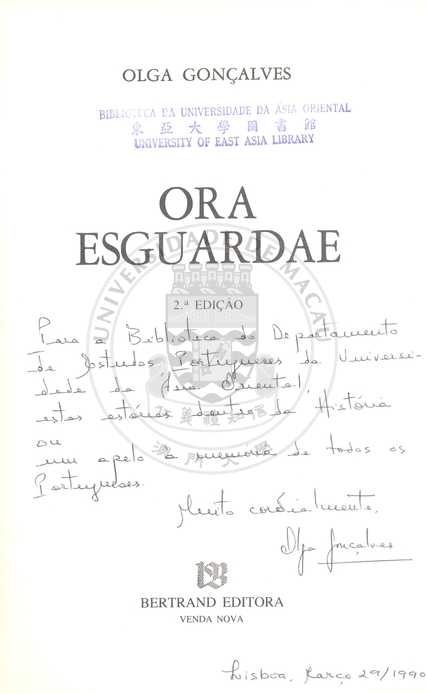 OLGA GONÇALVES
BIBLIOTECA DA UNIVERSIDADE DA ÁSIA ORIENTAL
東亞大學圖書館
UNIVERSITY OF EAST ASIA LIBRARY
ORA
ESGUARDAE
UNIVERSIDADE DE MACAU
2.ª EDIÇÃO
Para a Biblioteca do Departamento
de Estudos Portugueses da Universi-
dade da Ásia Oriental,
estas estórias dentro da História
ou
um apelo à memória de todos os
Portugueses.
仁義禮知信
澳門大學
Muito cordialmente,
Olga Gonçalves
BERTRAND EDITORA
VENDA NOVA
Lisboa, Março 29/1990